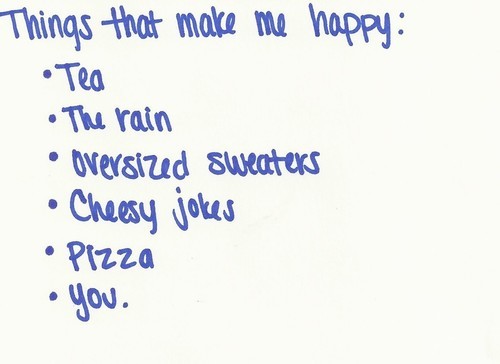 Things that make me happy:
• Tea
• The rain
• oversized sweaters
• Cheesy jokes
• Pizza
• you.